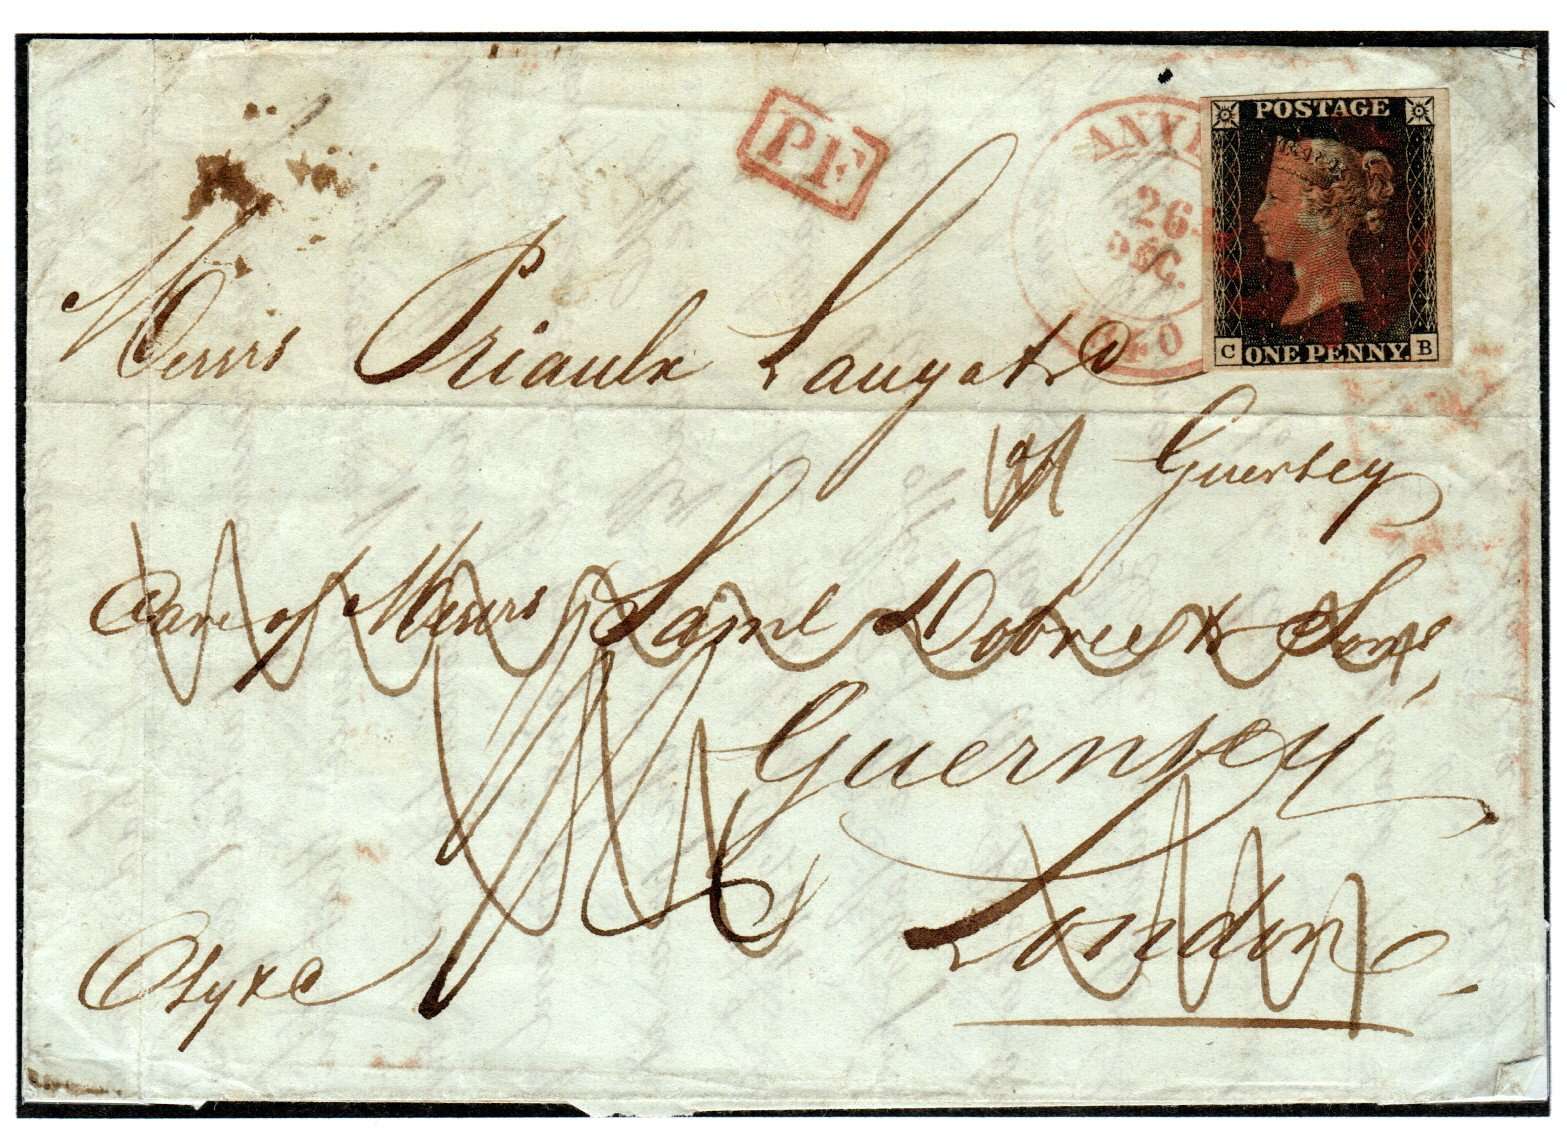 P.F.
ANVE
26
DEC.
1840
POSTAGE
ONE PENNY
C B
Messrs Priaulx Langat &
of Guernsey
Care of Messrs Saml Dobree & Sons,
Guernsey
London